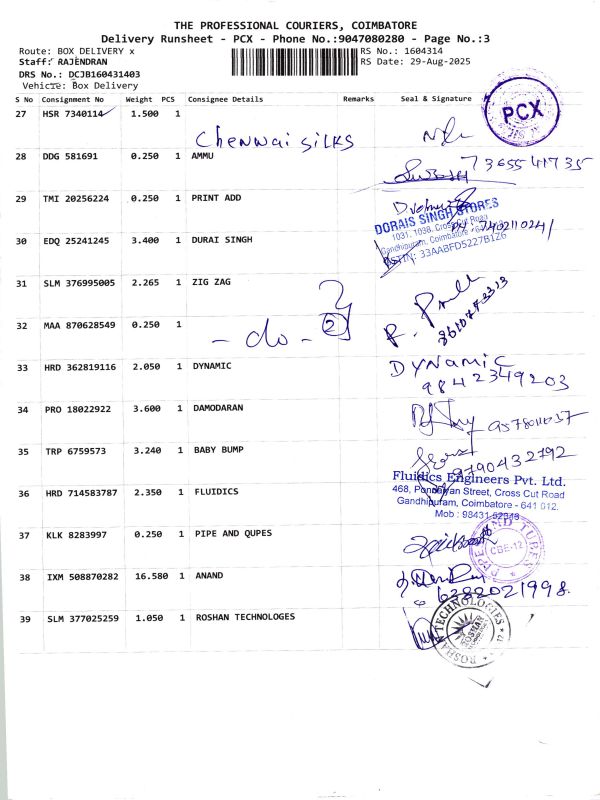 THE PROFESSIONAL COURIERS, COIMBATORE
Delivery Runsheet - PCX - Phone No.:9047080280 - Page No.:3
Route: BOX DELIVERY x
RS No.: 1604314
Staff: RAJENDRAN
RS Date: 29-Aug-2025
DRS No.: DCJB160431403
Vehicle: Box Delivery
S No Consignment No Weight PCS Consignee Details Remarks Seal & Signature
27 HSR 7340114 1.500 1
Chennai silks
PCX
28 DDG 581691 0.250 1 AMMU
7365541735
29 TMI 20256224 0.250 1 PRINT ADD
DORAIS SINGH STORES
1031, 1038, Cross Cut Road
Gandhipuram, Coimbatore
GSTIN: 33AABFD5227B126
7402110241
30 EDQ 25241245 3.400 1 DURAI SINGH
31 SLM 376995005 2.265 1 ZIG ZAG
32 MAA 870628549 0.250 1
- do - 2
8610773313
33 HRD 362819116 2.050 1 DYNAMIC
DYNAMIC
9842349203
34 PRO 18022922 3.600 1 DAMODARAN
35 TRP 6759573 3.240 1 BABY BUMP
9790432792
36 HRD 714583787 2.350 1 FLUIDICS
Fluidics Engineers Pvt. Ltd.
468, Pondiyan Street, Cross Cut Road
Gandhipuram, Coimbatore - 641 012.
Mob : 98431 52348
37 KLK 8283997 0.250 1 PIPE AND QUPES
PIPE AND TUBES
CBE-12
38 IXM 508870282 16.580 1 ANAND
6382021998
39 SLM 377025259 1.050 1 ROSHAN TECHNOLOGES
ROSHAN TECHNOLOGIES
ROSHAN